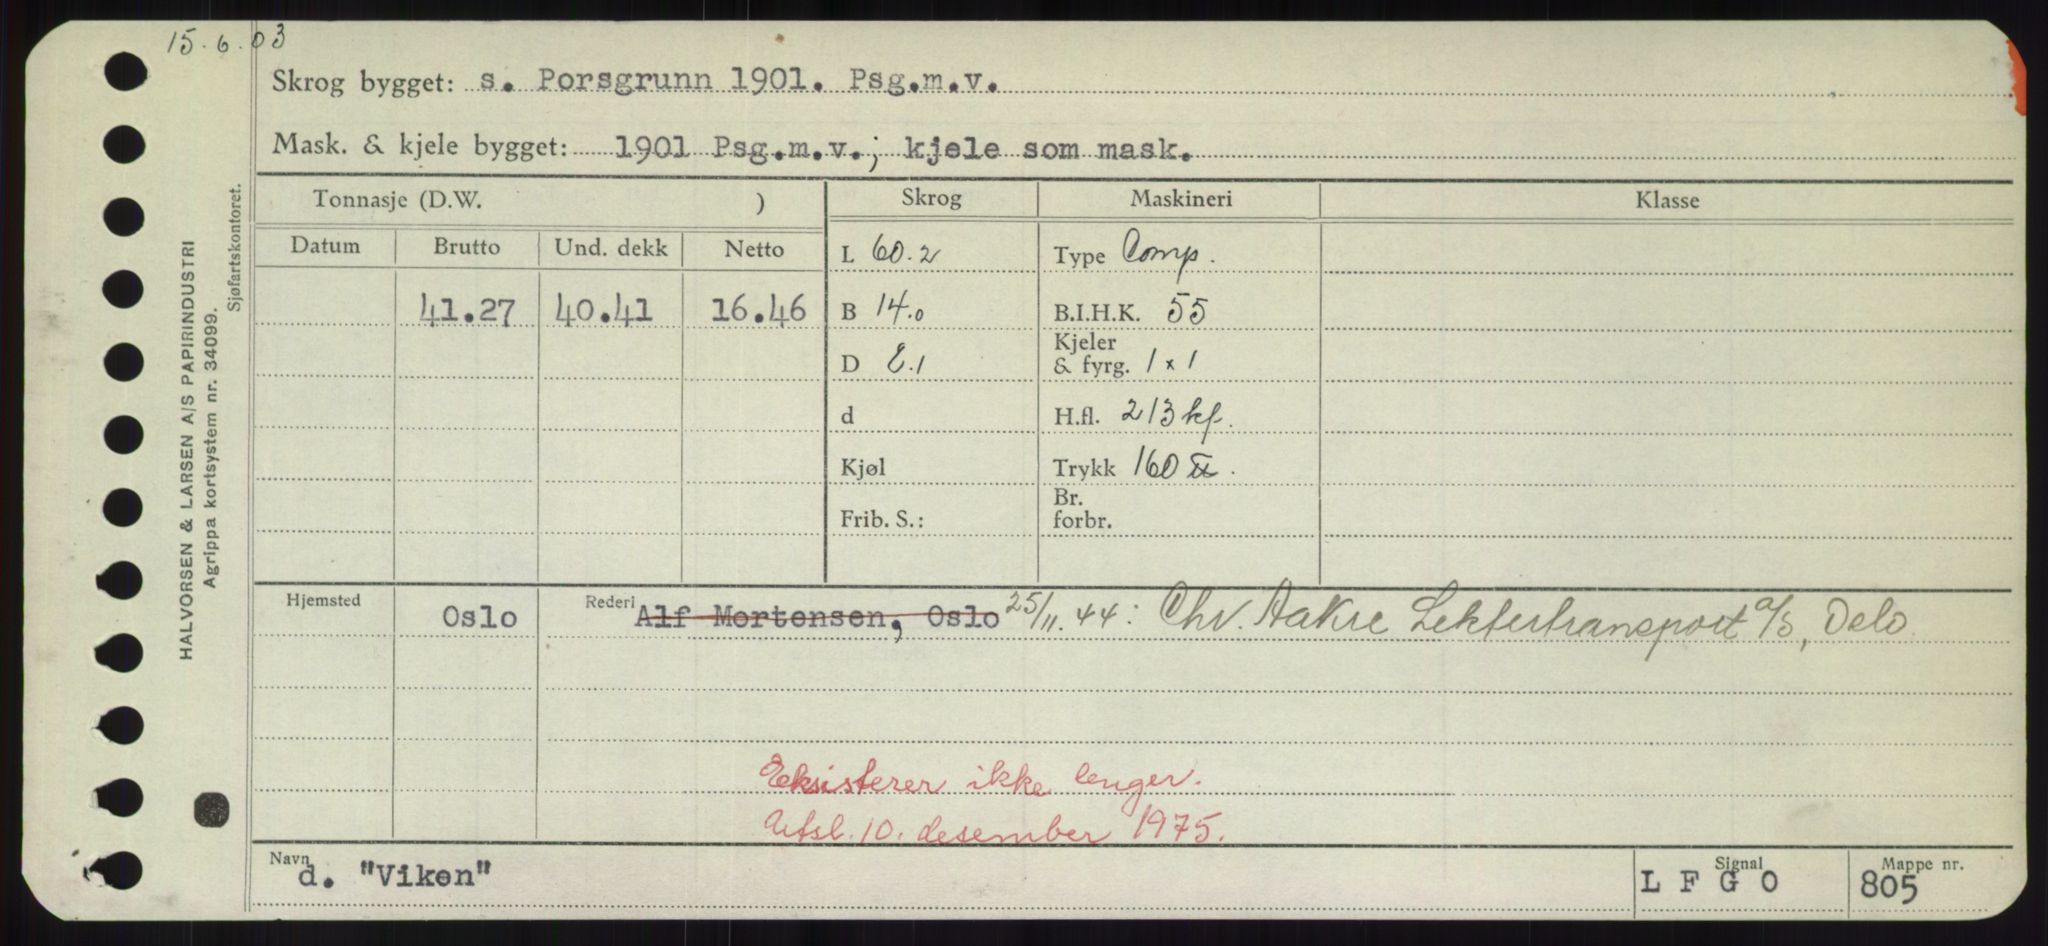 15.6.03
Skrog bygget: s. Porsgrunn 1901. Psg.m.v.
Mask. & kjele bygget: 1901 Psg.m.v.; kjele som mask.
Tonnasje (D.W. ) Skrog Maskineri Klasse
Datum Brutto Und. dekk Netto L 60.2 Type Comp.
41.27 40.41 16.46 B 14.0 B.I.H.K. 55
D 8.1 Kjeler & fyrg. 1 x 1
d H.fl. 213 kf.
Kjøl Trykk 160 ℔.
Frib. S.: Br. forbr.
Hjemsted Oslo Rederi Alf Mortensen, Oslo 25/11.44: Chr. Aakre Lektertransport a/s, Oslo
Eksisterer ikke lenger.
Utsl. 10. desember 1975.
Navn d. "Viken" Signal L F G O Mappe nr. 805
HALVORSEN & LARSEN A/S PAPIRINDUSTRI
Agrippa kortsystem nr. 34099.
Sjøfartskontoret.